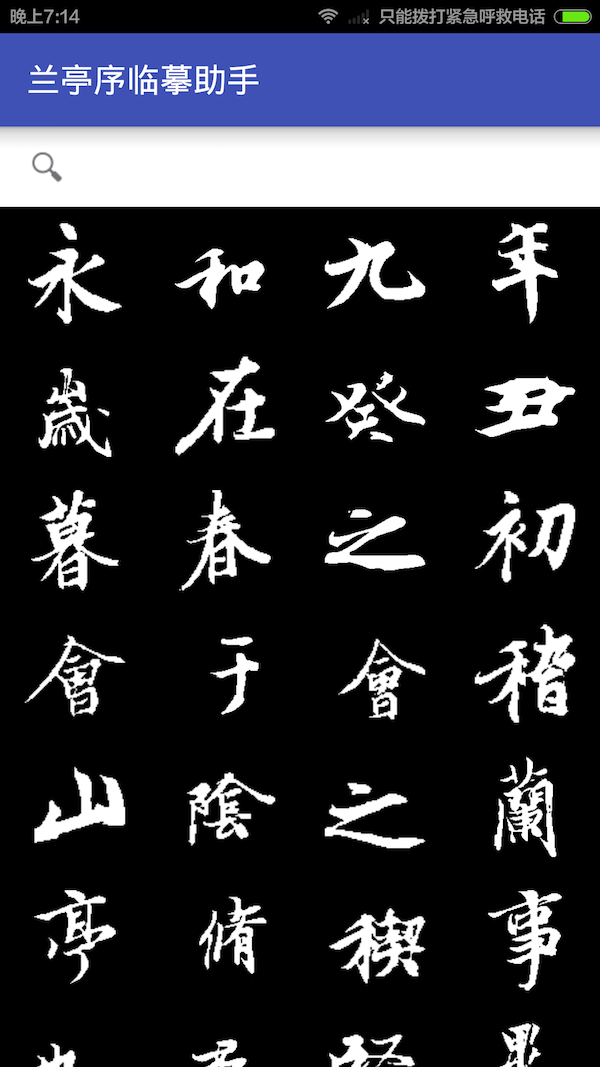 晚上7:14 只能拨打紧急呼救电话
兰亭序临摹助手
永和九年
歲在癸丑
暮春之初
會于會稽
山陰之蘭
亭脩稧事
也羣賢畢